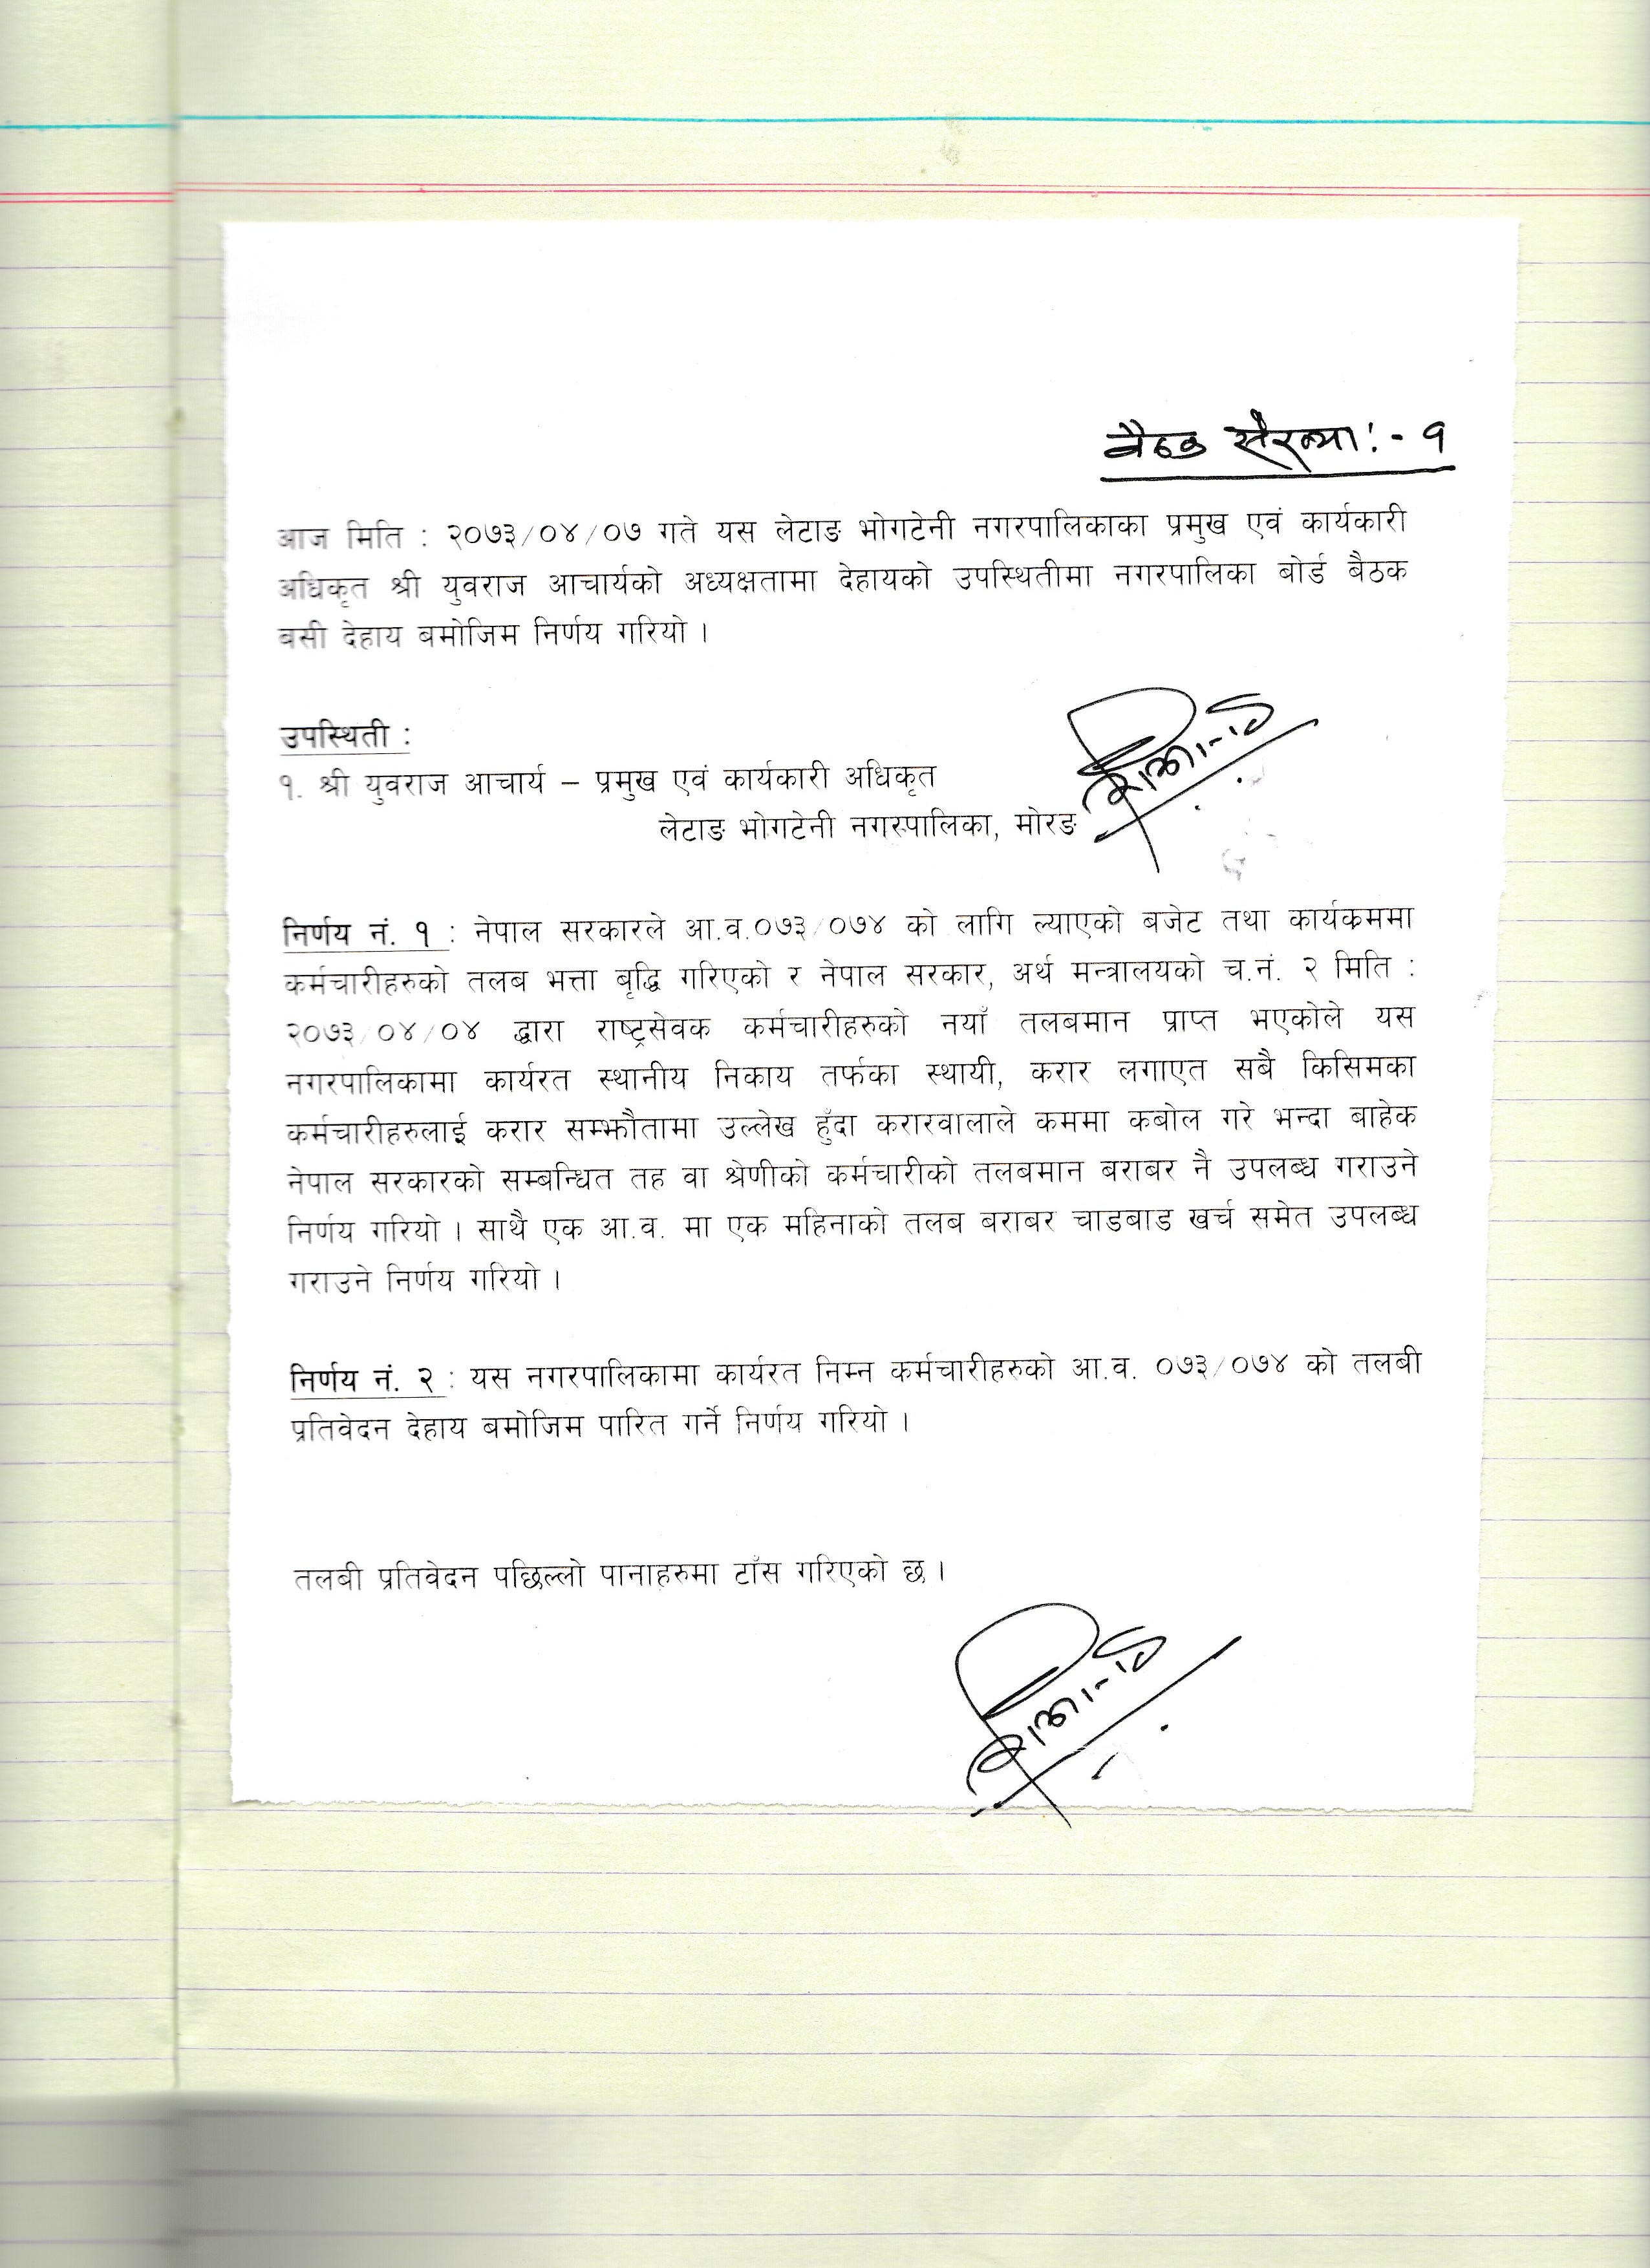 बैठक संख्या:- १
आज मिति : २०७३/०४/०७ गते यस लेटाङ भोगटेनी नगरपालिकाका प्रमुख एवं कार्यकारी
अधिकृत श्री युवराज आचार्यको अध्यक्षतामा देहायको उपस्थितीमा नगरपालिका बोर्ड बैठक
बसी देहाय बमोजिम निर्णय गरियो ।
उपस्थिती :
१. श्री युवराज आचार्य – प्रमुख एवं कार्यकारी अधिकृत
लेटाङ भोगटेनी नगरपालिका, मोरङ
निर्णय नं. १ : नेपाल सरकारले आ.व.०७३/०७४ को लागि ल्याएको बजेट तथा कार्यकममा
कर्मचारीहरुको तलब भत्ता बृद्धि गरिएको र नेपाल सरकार, अर्थ मन्त्रालयको च.नं. २ मिति :
२०७३/०४/०४ द्वारा राष्ट्रसेवक कर्मचारीहरुको नयाँ तलबमान प्राप्त भएकोले यस
नगरपालिकामा कार्यरत स्थानीय निकाय तर्फका स्थायी, करार लगाएत सबै किसिमका
कर्मचारीहरुलाई करार सम्झौतामा उल्लेख हुँदा करारवालाले कममा कबोल गरे भन्दा बाहेक
नेपाल सरकारको सम्बन्धित तह वा श्रेणीको कर्मचारीको तलबमान बराबर नै उपलब्ध गराउने
निर्णय गरियो । साथै एक आ.व. मा एक महिनाको तलब बराबर चाडबाड खर्च समेत उपलब्ध
गराउने निर्णय गरियो ।
निर्णय नं. २ : यस नगरपालिकामा कार्यरत निम्न कर्मचारीहरुको आ.व. ०७३/०७४ को तलबी
प्रतिवेदन देहाय बमोजिम पारित गर्ने निर्णय गरियो ।
तलबी प्रतिवेदन पछिल्लो पानाहरुमा टाँस गरिएको छ ।